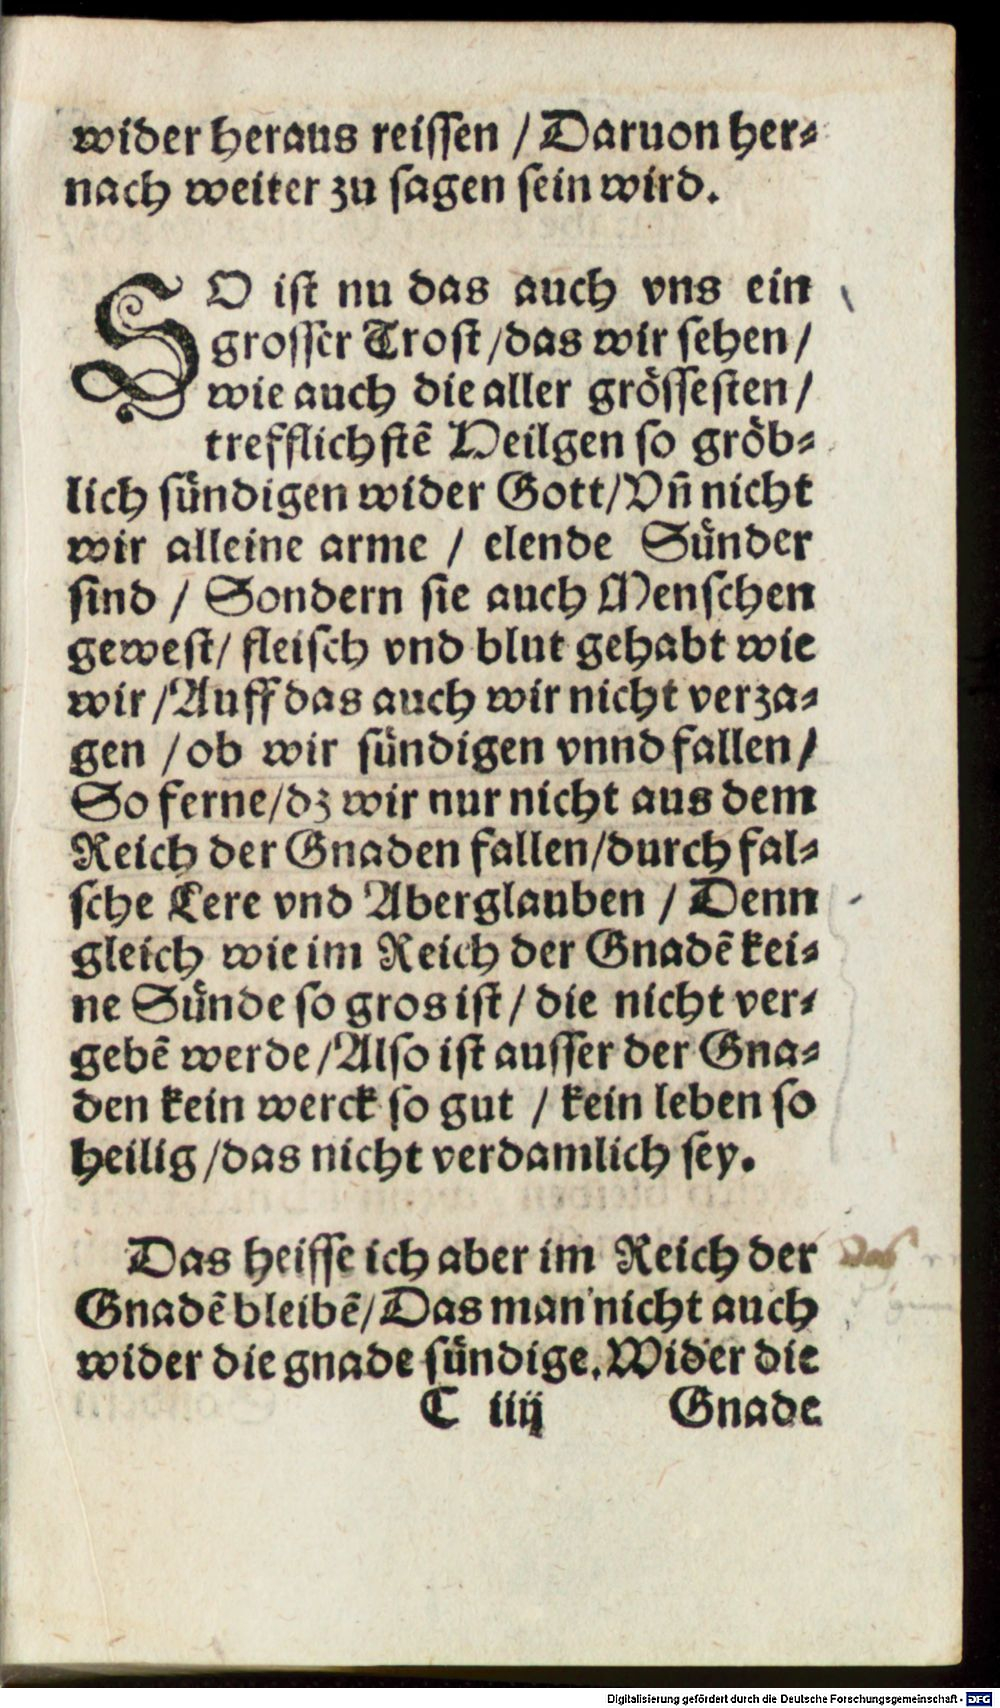 wider heraus reissen / Daruon her⸗
nach weiter zu sagen sein wird.
SO ist nu das auch vns ein
grosser Trost / das wir sehen /
wie auch die aller grössesten /
trefflichstē Heilgen so gröb⸗
lich sündigen wider Gott / Vn̄ nicht
wir alleine arme / elende Sünder
sind / Sondern sie auch Menschen
gewest / fleisch vnd blut gehabt wie
wir / Auff das auch wir nicht verza⸗
gen / ob wir sündigen vnnd fallen /
So ferne / dz wir nur nicht aus dem
Reich der Gnaden fallen / durch fal⸗
sche Lere vnd Aberglauben / Denn
gleich wie im Reich der Gnadē kei⸗
ne Sünde so gros ist / die nicht ver⸗
gebē werde / Also ist ausser der Gna⸗
den kein werck so gut / kein leben so
heilig / das nicht verdamlich sey.
Das heisse ich aber im Reich der
Gnadē bleibē / Das man nicht auch
wider die gnade sündige. Wider die
C iiij Gnade
Digitalisierung gefördert durch die Deutsche Forschungsgemeinschaft - DFG